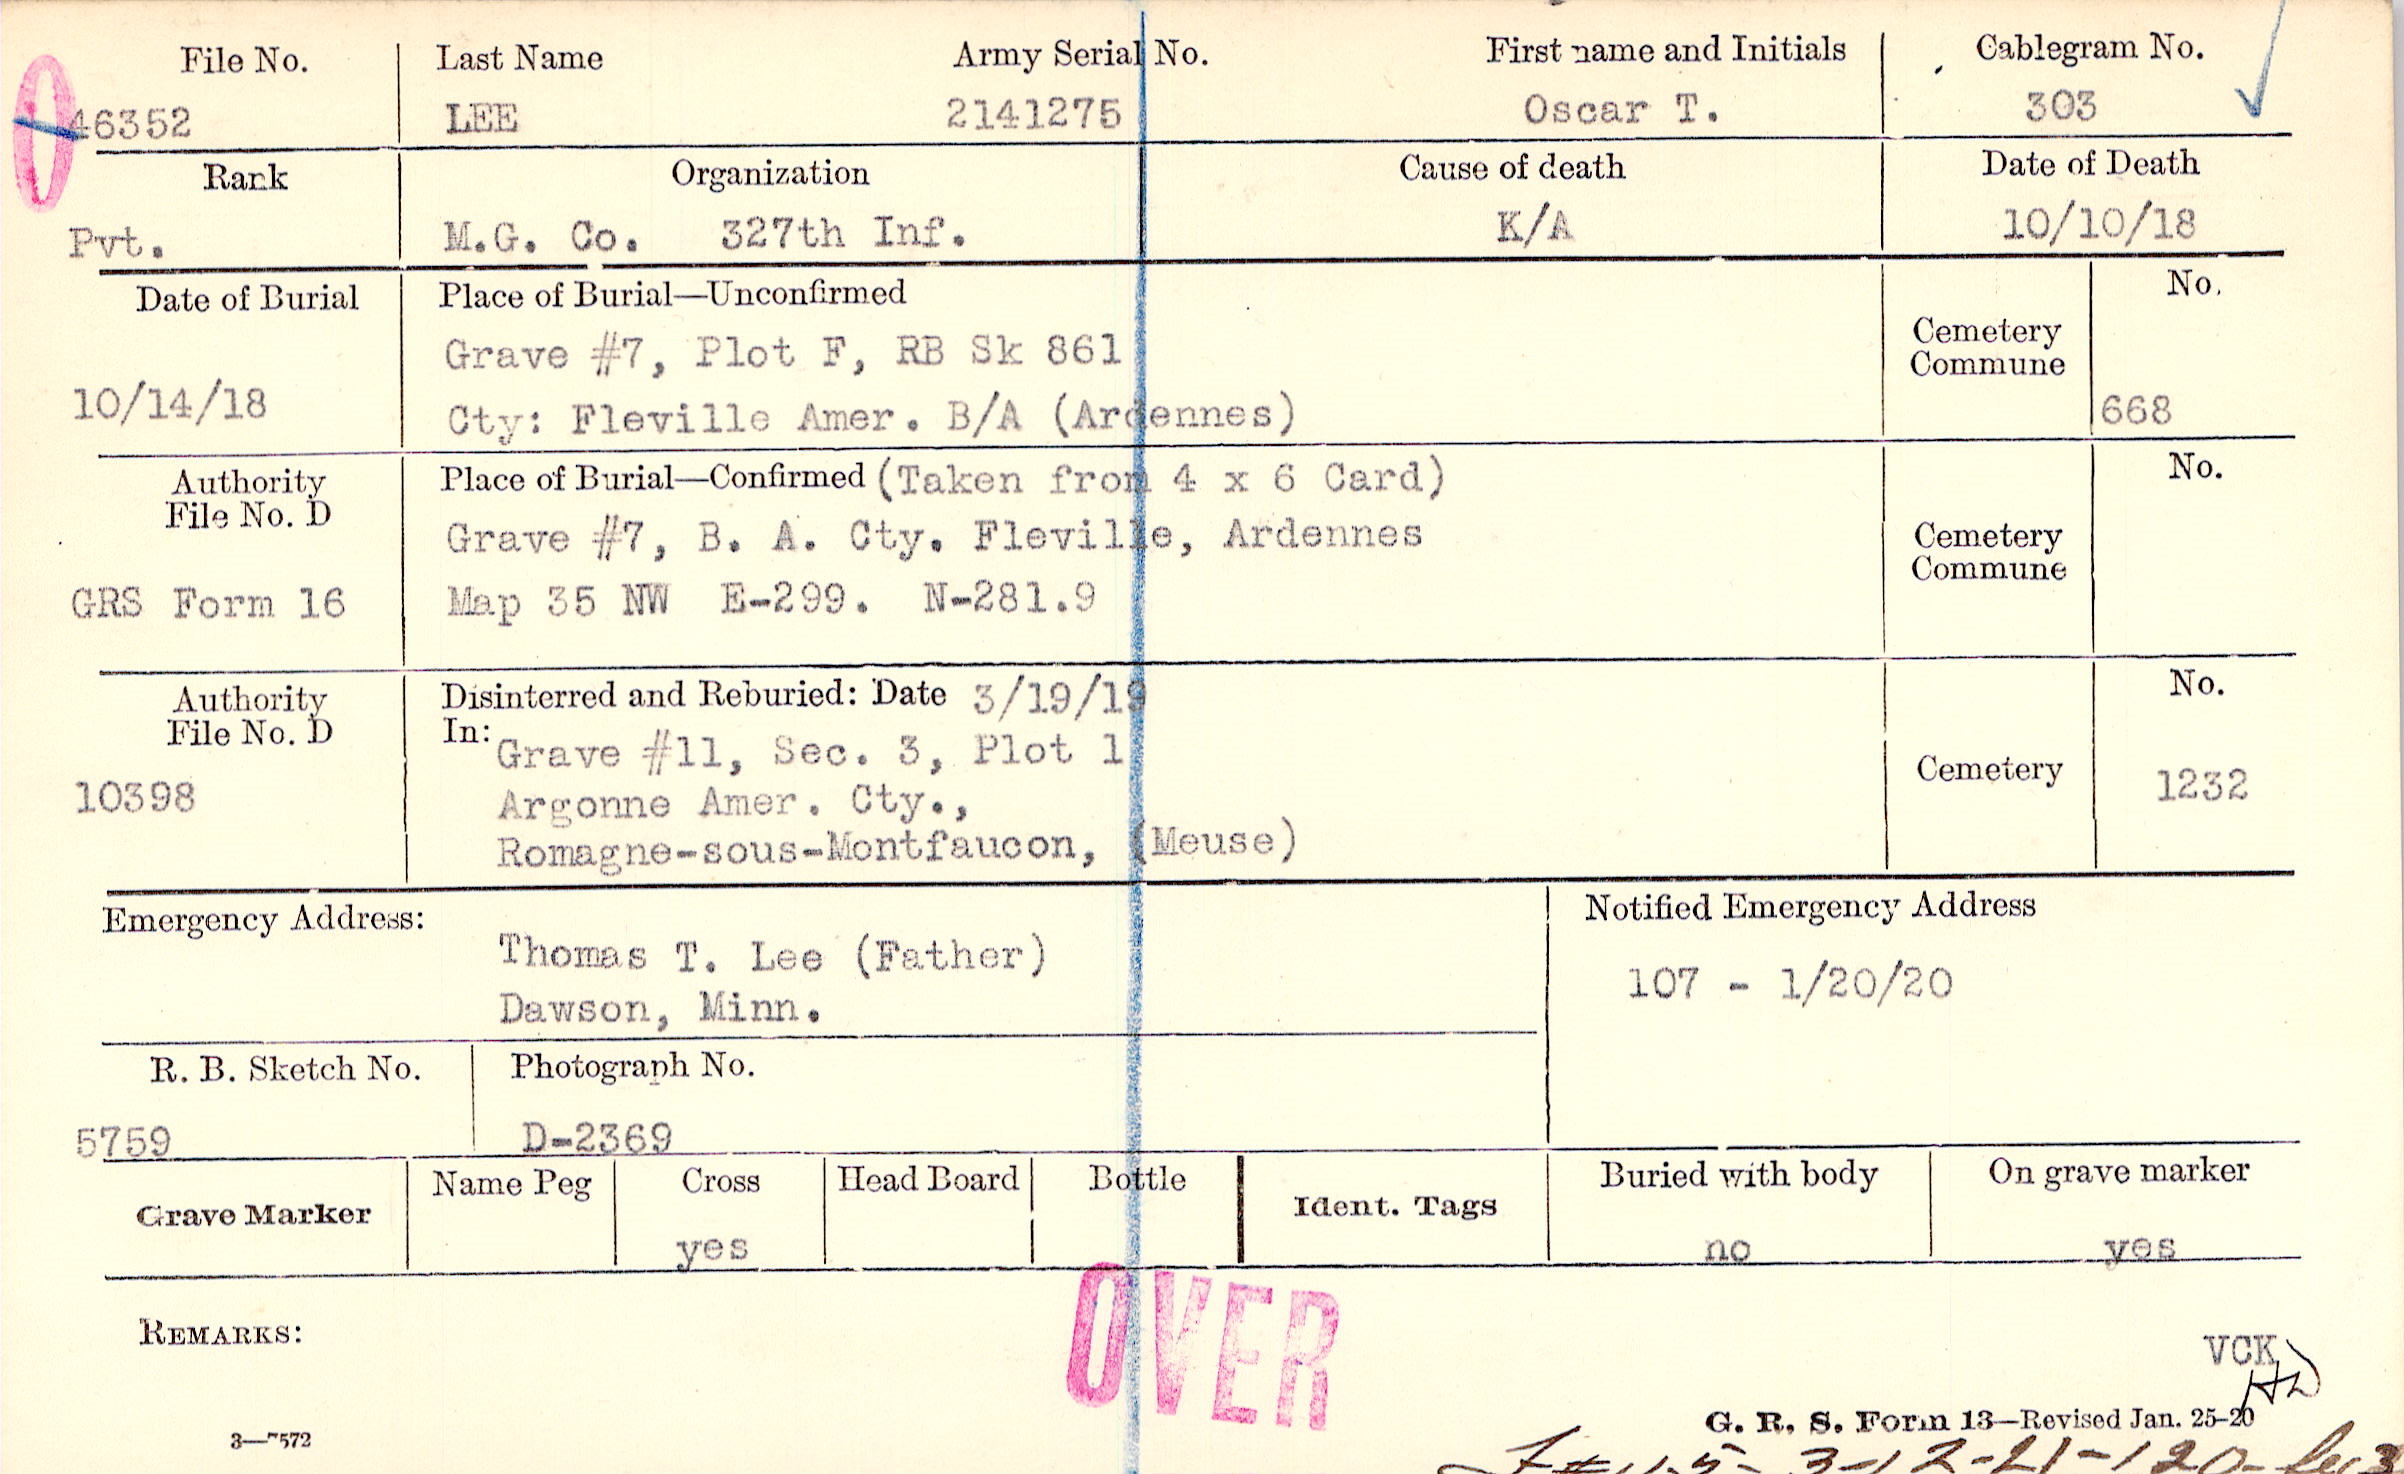 File No. Last Name Army Serial No. First name and Initials Cablegram No.
46352 LEE 2141275 Oscar T. 303
Rank Organization Cause of death Date of Death
Pvt. M.G. Co. 327th Inf. K/A 10/10/18
Date of Burial Place of Burial—Unconfirmed No.
Grave #7, Plot F, RB Sk 861 Cemetery
Commune
10/14/18 Cty: Fleville Amer. B/A (Ardennes) 668
Authority Place of Burial—Confirmed (Taken from 4 x 6 Card) No.
File No. D
Grave #7, B. A. Cty. Fleville, Ardennes Cemetery
Commune
GRS Form 16 Map 35 NW E-299. N-281.9
Authority Disinterred and Reburied: Date 3/19/19 No.
File No. D In: Grave #11, Sec. 3, Plot 1
10398 Argonne Amer. Cty., Cemetery 1232
Romagne-sous-Montfaucon, (Meuse)
Emergency Address: Notified Emergency Address
Thomas T. Lee (Father) 107 - 1/20/20
Dawson, Minn.
R. B. Sketch No. Photograph No.
5759 D-2369
Grave Marker Name Peg Cross Head Board Bottle Ident. Tags Buried with body On grave marker
yes no yes
OVER
REMARKS:
VCK
HD
G. R. S. Form 13—Revised Jan. 25-20
3—7572